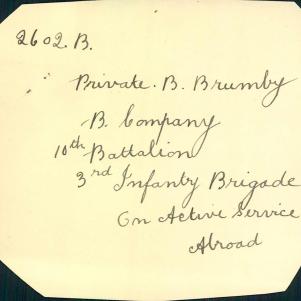 2602.B.
Private. B. Brumby
B. Company
10th Battalion
3rd Infantry Brigade
On Active Service
Abroad